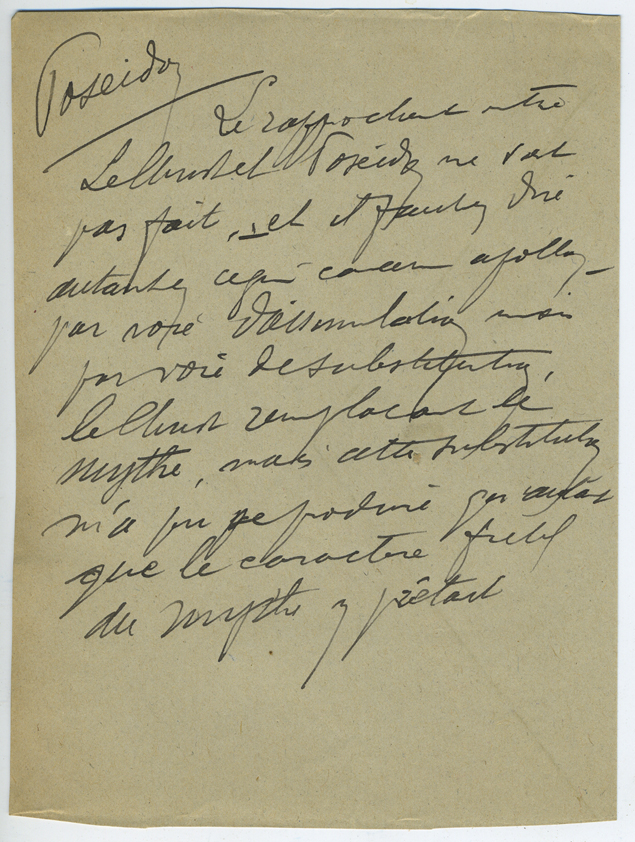 Poseidon
Le rapprochement entre
Le Christ et Poséidon ne s'est
pas fait, et il faudra dire
autant que ce qui concerne Apollon
par voie d'assimilation mais
par voie de substitution,
le Christ remplaçant le
mythe, mais cette substitution
n'a pu se produire qu'autant
que le caractère
du mythe y prêtait